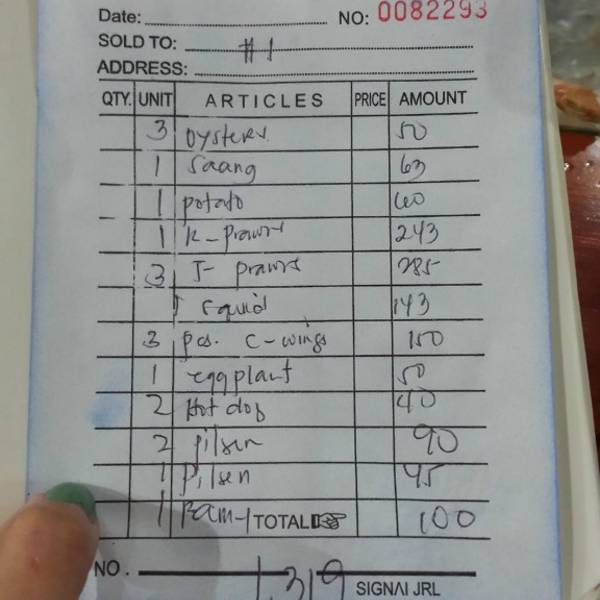 Date: NO: 0082293
SOLD TO: #1
ADDRESS:
QTY. UNIT ARTICLES PRICE AMOUNT
3 oysters 50
1 saang 63
1 potato 60
1 K-prawn 243
3 J- prawns 285
1 squid 143
3 pcs. c-wings 150
1 eggplant 50
2 Hot dog 40
2 pilsen 90
1 Pilsen 45
1 Bam-1 TOTAL 100
NO. 1,319 SIGNAI JRL